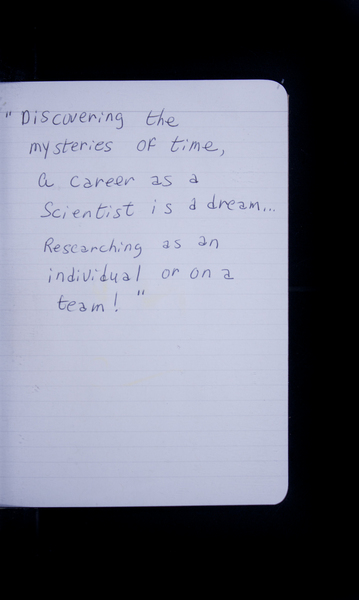 "Discovering the
mysteries of time,
a career as a
Scientist is a dream...
Researching as an
individual or on a
team!"